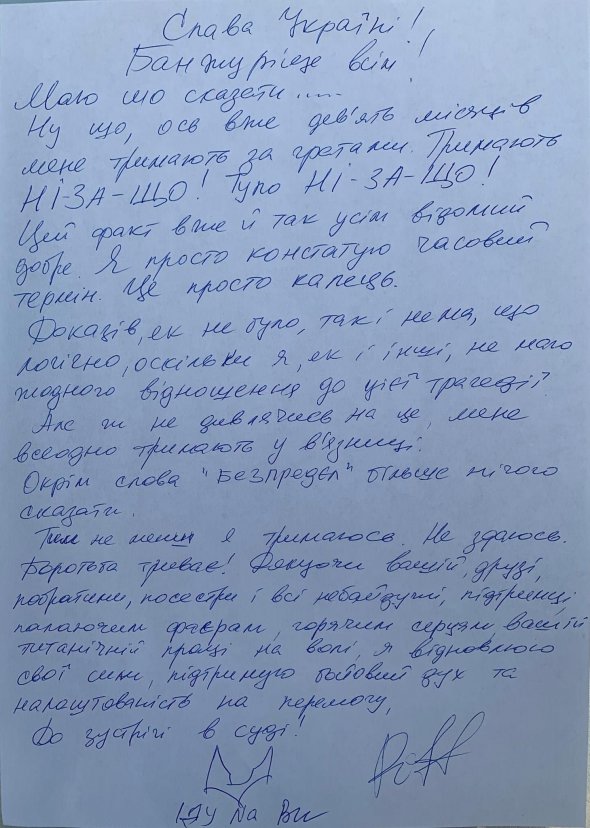 Слава Україні!
Банжурієще всім!
Маю що сказати.....
Ну що, ось вже дев'ять місяців
мене тримають за гратами. Тримають
НІ-ЗА-ЩО! Тупо НІ-ЗА-ЩО!
Цей факт вже й так усім відомий
добре. Я просто констатую часовий
термін. Це просто капець.
Доказів, як не було, так і нема, що
логічно, оскільки я, як і інші, не маю
жодного відношення до цієї трагедії.
Але ж не дивлячись на це, мене
всеодно тримають у в'язниці.
Окрім слова "БЕЗПРЕДЄЛ" більше нічого
сказати.
Тим не менш я тримаюсь. Не здаюсь.
Боротьба триває! Дякуючи вашій, друзі,
побратими, посестри і всі небайдужі, підтримці,
палаючим фаєрам, горячим серцям, вашій
титанічній праці на волі, я відновлюю
свої сили, підтримую бойовий дух та
налаштованість на перемогу.
До зустрічі в суді!